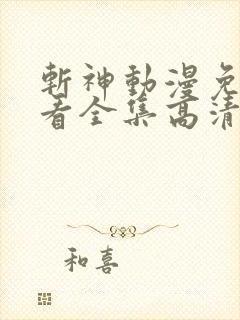 斬神動漫免
看全集高清
和喜